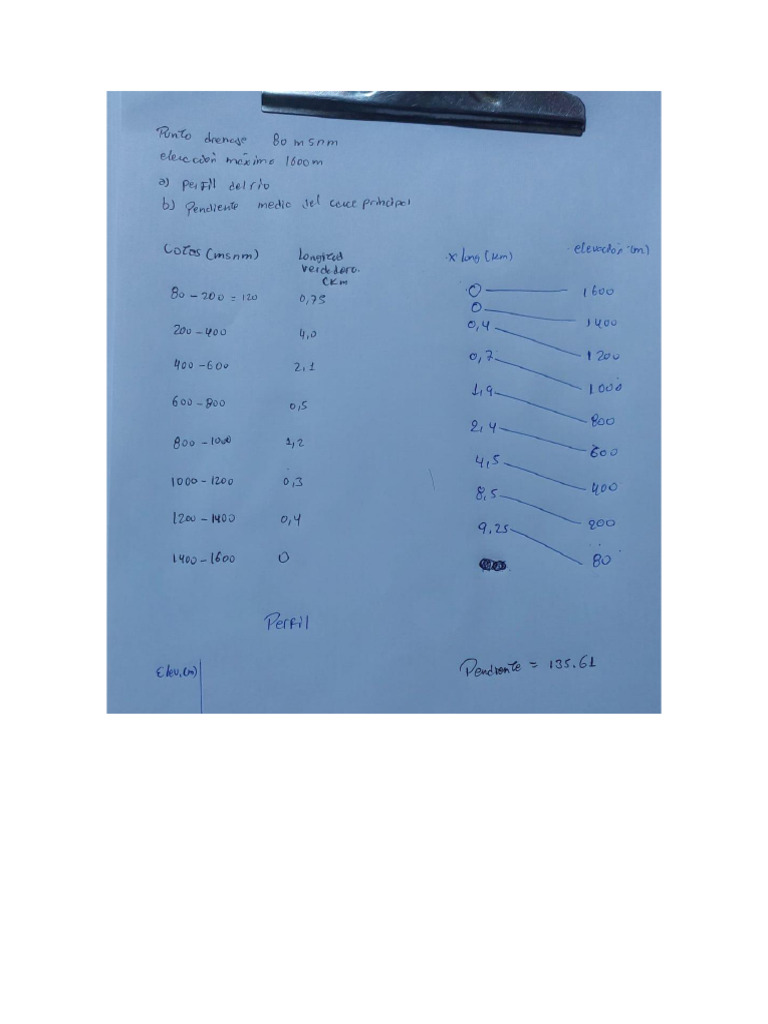 Punto drenaje 80 msnm
elevación máximo 1600m
a) perfil del rio
b) Pendiente medio del cauce principal
Cotas (msnm) Longitud verdadera. (Km x long (Km) elevación (m)
80 - 200 = 120 0,75 0 1600
200 - 400 4,0 0 1400
400 - 600 2,1 0,4 1200
600 - 800 0,5 0,7 1000
800 - 1000 1,2 1,9 800
1000 - 1200 0,3 2,4 600
1200 - 1400 0,4 4,5 400
1400 - 1600 0 8,5 200
9,25 80
Perfil
Elev.(m) Pendiente = 135.61